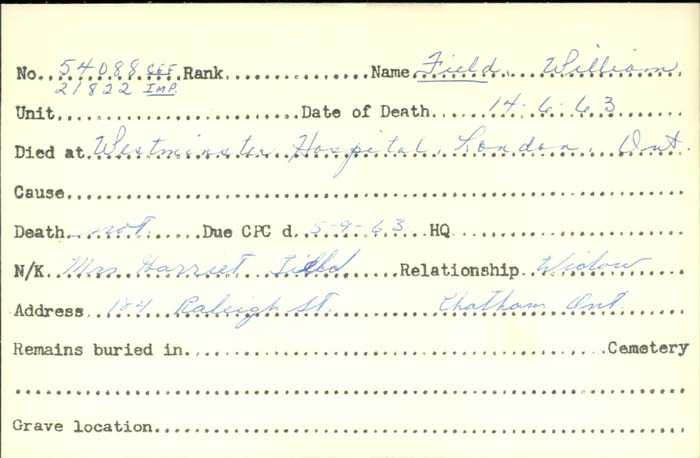 No. 54088 CEF Rank Name Field, William
21822 IMP.
Unit Date of Death 14-6-63
Died at Westminster Hospital, London, Ont.
Cause
Death not Due CPC d. 5-9-63 HQ
N/K Mrs Harriet Field Relationship Widow
Address 184 Raleigh St. Chatham Ont.
Remains buried in Cemetery
Grave location